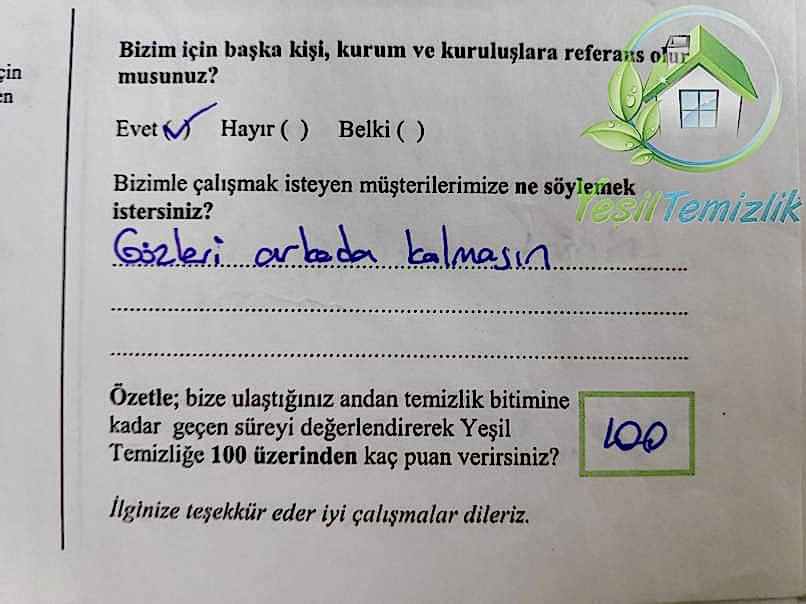 çin
en
Bizim için başka kişi, kurum ve kuruluşlara referans olur
musunuz?
Evet (✓) Hayır ( ) Belki ( )
Bizimle çalışmak isteyen müşterilerimize ne söylemek
istersiniz?
Gözleri arkada kalmasın
Özetle; bize ulaştığınız andan temizlik bitimine
kadar geçen süreyi değerlendirerek Yeşil
Temizliğe 100 üzerinden kaç puan verirsiniz?
100
İlginize teşekkür eder iyi çalışmalar dileriz.
YeşilTemizlik